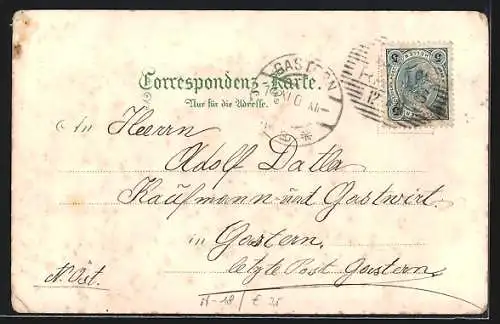 GASTERN
Correspondenz-Karte.
Nur für die Adresse.
An Herrn
Adolf Datler
Kaufmann und Gastwirt
in Gastern.
letzte Post Gastern
N. Öst.